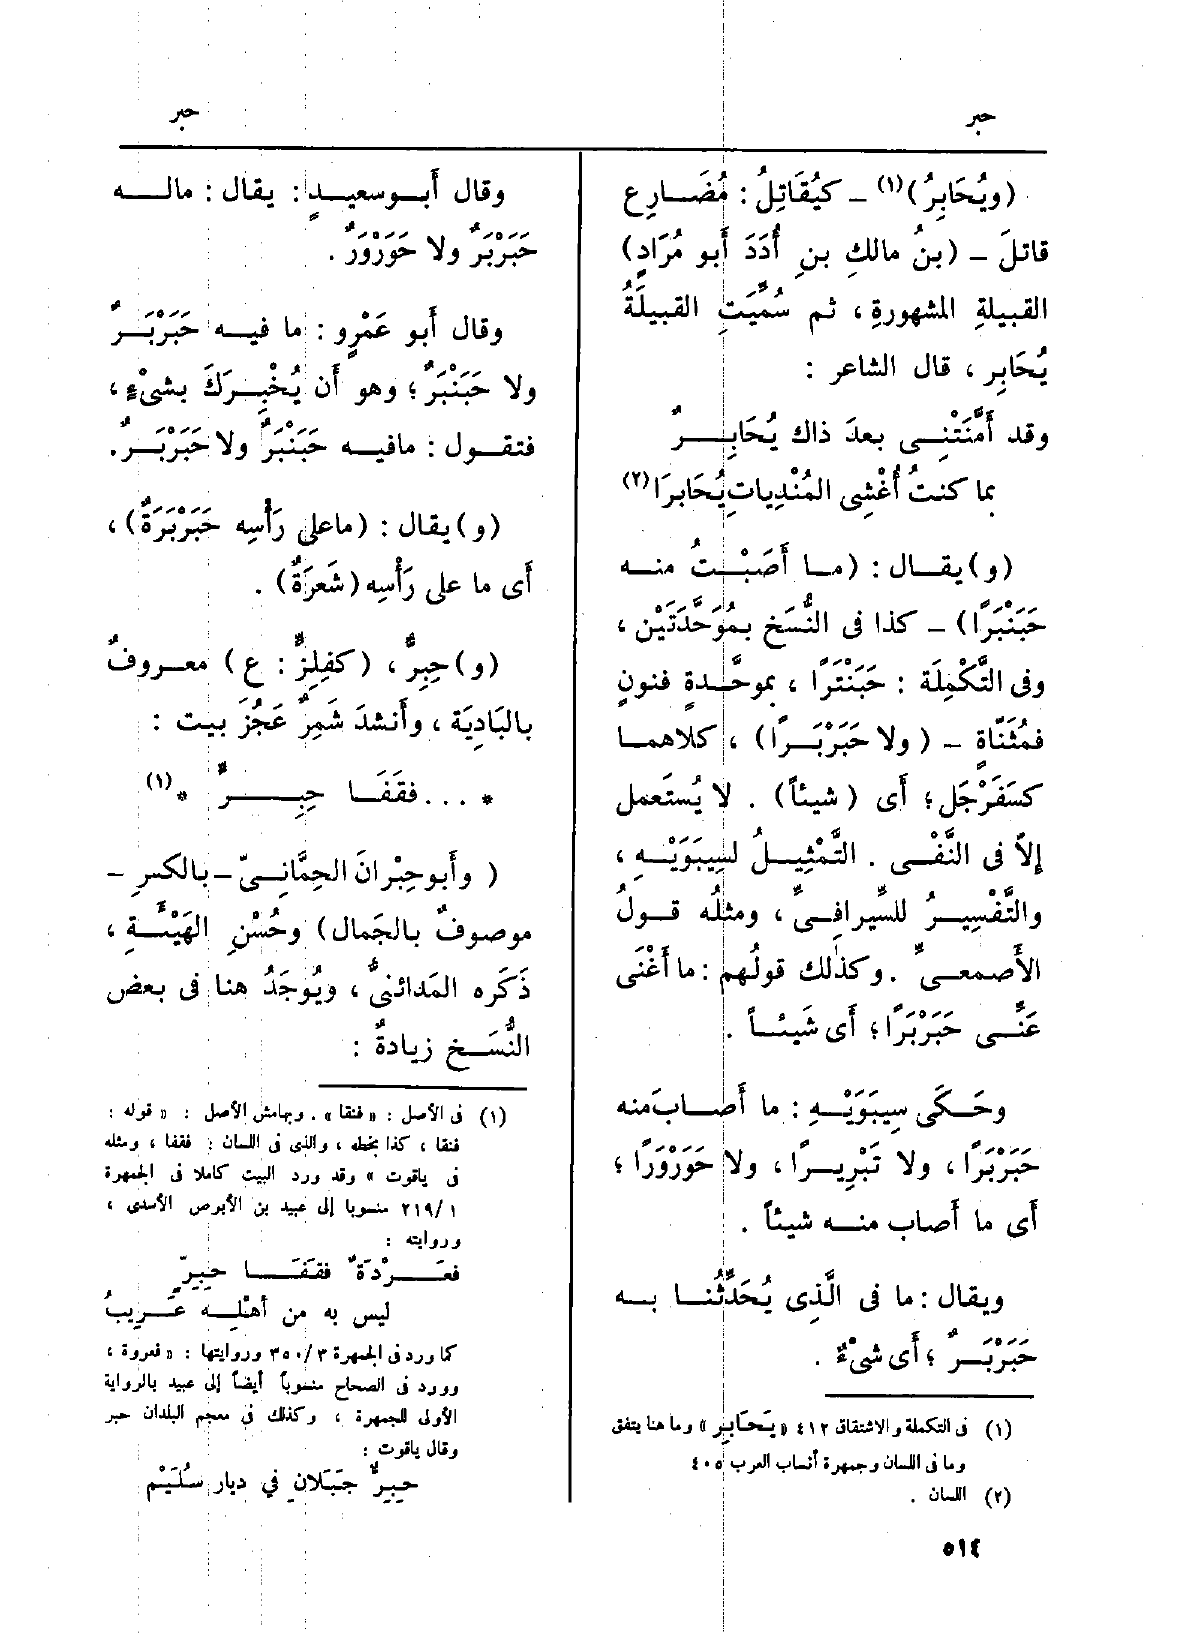 حبر
حبر
(ويُحَابِرُ)(١) ــ كيُقَاتِلُ: مُضَـارِع
قاتلَ ــ (بنُ مالكِ بنِ أُدَدَ أَبو مُرَادٍ)
القبيلةِ المشهورةِ، ثم سُمِّيَتِ القبيلَةُ
يُحَابِر، قال الشاعر :
وقد أَمَّنَتْنِـى بعدَ ذاك يُحَابِــرٌ
بما كنتُ أُغْشِى المُنْدِياتِ يُحَابرَا(٢)
(و) يقـال : (مـا أَصَبْـتُ منـه
حَبَنْبَرًا) ــ كذا فى النُّسَخ بمُوَحَّدَتَيْن ،
وفى التَّكْمِلَة : حَبَنْتَرًا ، بموحَّدةٍ فنونٍ
فمُثَنَّاةٍ ــ (ولا حَبَرْبَـرًا) ، كلاهمـا
كسَفَرْجَل؛ أى (شيئاً) . لا يُستعمل
إلاّ فى النَّفْـى . التَّمْثِيـلُ لسِيبَوَيْـهِ ،
والتَّفْسِيـرُ للسِّيرافِـىِّ ، ومثلُه قـولُ
الأَصمعـىِّ . وكذٰلك قولُهم : ما أَغْنَى
عَنِّـى حَبَرْبَرًا؛ أَى شَيئـاً .
وحَـكَى سِيبَوَيْـهِ : ما أَصـاب منه
حَبَرْبَرًا ، ولا تَبْرِيـرًا ، ولا حَوَرْوَرًا ؛
أى ما أَصاب منـه شيئاً .
ويقال : ما فى الَّذِى يُحَدِّثُنـا بـه
حَبَرْبَـرٌ ؛ أَى شىْءٌ .
(١) فى التكملة والاشتقاق ٤١٢ «يَحَابِر» وما هنا يتفق
وما فى اللسان وجمهرة أنساب العرب ٤٠٥
(٢) اللسان .
وقال أَبـو سعيـدٍ : يقال : مالـه
حَبَرْبَرٌ ولا حَوَرْوَرٌ .
وقال أَبو عَمْرٍو : ما فيـه حَبَرْبَـرٌ
ولا حَبَنْبَرٌ ؛ وهو أَن يُخْبِـرَكَ بشىْءٍ ،
فتقـول : مافيـه حَبَنْبَرٌ ولا حَبَرْبَـرٌ.
(و) يقال : (ماعلى رَأْسِه حَبَرْبَرَةٌ) ،
أَى ما على رَأْسِه (شَعرَةٌ) .
(و) حِبِرٌّ ، (كفِلِزٍّ : ع) معـروفٌ
بالبَادِيَة ، وأَنشدَ شَمِرٌ عَجُزَ بيت :
* ... فقَفَـا حِبِــرٍّ *(١)
( وأَبو حِبْرانَ الحِمَّانِـىّ ــ بالكسر ــ
موصوفٌ بالجَمال) وحُسْنِ الهَيْئَـةِ ،
ذَكَره المَدائنىُّ ، ويُوجَدُ هنا فى بعض
النُّسَـخ زيادةٌ :
(١) فى الأصل : «فنقا» . وبهامش الأصل : «قوله :
فنقا ، كذا بخطه ، والذى فى اللسان : فقفا ، ومثله
فى ياقوت » وقد ورد البيت كاملا فى الجمهرة
٢١٩/١ منسوبا إلى عبيد بن الأبرص الأسدى ،
وروايته :
فعَـرْدَةٌ فقَفَـا حِبِرٍّ
ليس به من أَهْلِـه عَـرِيبُ
كما ورد فى الجمهرة ٣/ ٣٥٠ وروايتها : «فعروة ،
وورد فى الصحاح منسوباً أيضاً إلى عبيد بالرواية
الأولى للجمهرة ، وكذلك فى معجم البلدان حبر
وقال ياقوت :
حِبِرٌّ جَبَلان في ديار سُلَيْم
٥١٤